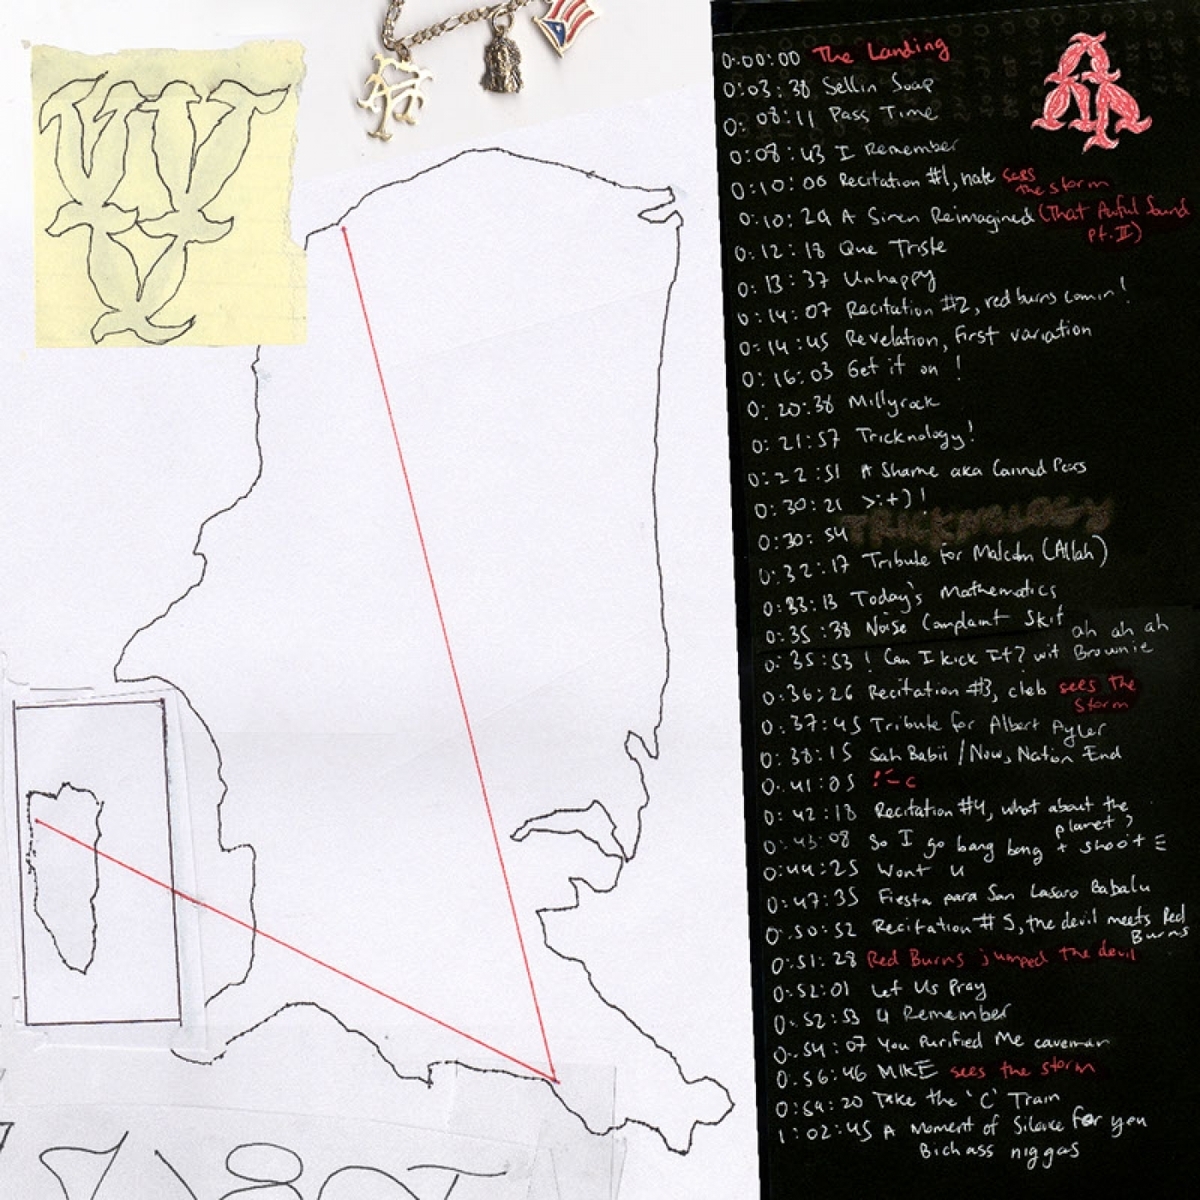 0:00:00 The Landing
0:03:38 Sellin Soap
0: 08:11 Pass Time
0:08:43 I Remember
0:10:00 Recitation #1, nate sees
the storm
0:10:29 A Siren Reimagined (That Awful Sound
pt. II)
0:12:18 Que Triste
0:13:37 Unhappy
0:14:07 Recitation #2, red burns comin!
0:14:45 Revelation, First variation
0:16:03 Get it on!
0:20:38 Millyrock
0:21:57 Tricknology!
0:22:51 A Shame aka Canned Pears
0:30:21 >:+)!
0:30:54 TRICKNOLOGY
0:32:17 Tribute for Malcolm (Allah)
0:33:13 Today's Mathematics
0:35:38 Noise Complaint Skit
ah ah ah
0:35:53 ! Can I kick It? wit Brownie
0:36:26 Recitation #3, cleb sees the
storm
0:37:45 Tribute for Albert Ayler
0:38:15 Sah Babii / Now, Nation End
0:41:05
0:42:18 Recitation #4, what about the
planet?
0:43:08 So I go bang bang + shoot E
0:44:25 Wont U
0:47:35 Fiesta para San Lasaro Babalu
0:50:52 Recitation # 5, the devil meets Red
Burns
0:51:28 Red Burns jumped the devil
0:52:01 Let Us Pray
0:52:53 U Remember
0:54:07 You Purified Me caveman
0:56:46 MIKE sees the storm
0:59:20 Take the 'C' Train
1:02:45 A Moment of Silence for you
Bich ass niggas